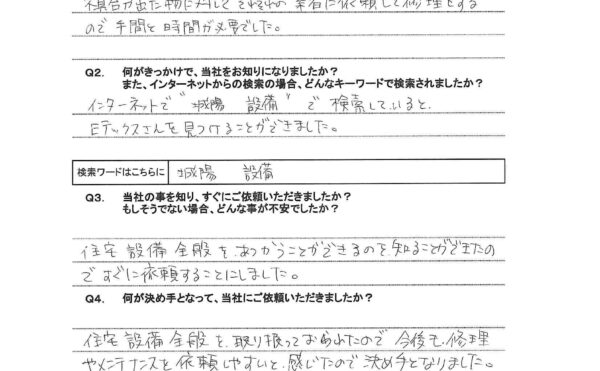 不具合が出た物に対してそれぞれの業者に依頼して修理をする
ので手間と時間が必要でした。
Q2. 何がきっかけで、当社をお知りになりましたか？
また、インターネットからの検索の場合、どんなキーワードで検索されましたか？
インターネットで "城陽 設備" で検索していると、
Eテックスさんを見つけることができました。
検索ワードはこちらに 城陽 設備
Q3. 当社の事を知り、すぐにご依頼いただきましたか？
もしそうでない場合、どんな事が不安でしたか？
住宅設備全般を、あつかうことができるのを、知ることができたの
ですぐに依頼することにしました。
Q4. 何が決め手となって、当社にご依頼いただきましたか？
住宅設備全般を、取り扱っておられたので今後も、修理
やメンテナンスを依頼しやすいと、感じたので決め手となりました。